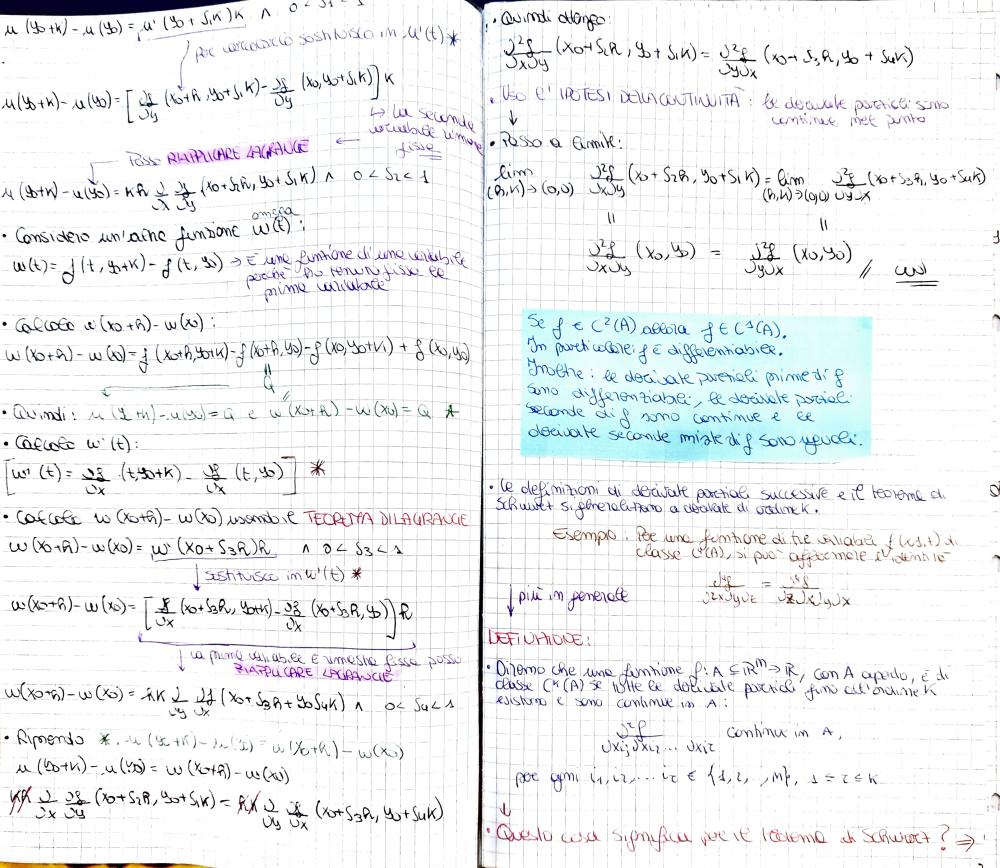 u(y0+k) - u(y0) = u'(y0 + δ1k)k ∧ 0 < δ1 < 1
per calcolarlo sostituisco in u'(t) *
u(y0+k) - u(y0) = [∂f/∂y (x0+h, y0+δ1k) - ∂f/∂y (x0, y0+δ1k)] k
↳ la seconda
variabile rimane
fissa
Posso RIAPPLICARE LAGRANGE
u(y0+k) - u(y0) = kh ∂/∂x ∂f/∂y (x0+δ2h, y0+δ1k) ∧ 0 < δ2 < 1
omega
• Considero un'altra funzione w(t):
w(t) = f(t, y0+k) - f(t, y0) → È una funzione di una variabile
perché ho tenuto fissa la
prima variabile
• Calcolo w(x0+h) - w(x0):
w(x0+h) - w(x0) = f(x0+h, y0+k) - f(x0+h, y0) - f(x0, y0+k) + f(x0, y0)
=
Q
• Quindi: u(y0+k) - u(y0) = Q e w(x0+h) - w(x0) = Q *
• Calcolo w'(t):
[w'(t) = ∂f/∂x (t, y0+k) - ∂f/∂x (t, y0)] *
• Calcolo w(x0+h) - w(x0) usando il TEOREMA DI LAGRANGE
w(x0+h) - w(x0) = w'(x0+δ3h)h ∧ 0 < δ3 < 1
↓ sostituisco in w'(t) *
w(x0+h) - w(x0) = [∂f/∂x (x0+δ3h, y0+k) - ∂f/∂x (x0+δ3h, y0)] h
↓ la prima variabile è rimasta fissa posso
RIAPPLICARE LAGRANGE
w(x0+h) - w(x0) = hk ∂/∂y ∂f/∂x (x0+δ3h + y0δ4k) ∧ 0 < δ4 < 1
• Riprendo *. u(y0+k) - u(y0) = w(x0+h) - w(x0)
u(y0+k) - u(y0) = w(x0+h) - w(x0)
kh ∂/∂x ∂f/∂y (x0+δ2h, y0+δ1k) = hk ∂/∂y ∂f/∂x (x0+δ3h, y0+δ4k)
• Quindi ottengo:
∂²f/∂x∂y (x0+δ2h, y0+δ1k) = ∂²f/∂y∂x (x0+δ3h, y0+δ4k)
• Uso l'IPOTESI DELLA CONTINUITÀ: le derivate parziali sono
continue nel punto
• Passo a limite:
lim (h,k)→(0,0) ∂²f/∂x∂y (x0+δ2h, y0+δ1k) = lim (h,k)→(0,0) ∂²f/∂y∂x (x0+δ3h, y0+δ4k)
= =
∂²f/∂x∂y (x0, y0) = ∂²f/∂y∂x (x0, y0) //
Se f ∈ C²(A) allora f ∈ C¹(A).
In particolare: f è differenziabile.
Inoltre: le derivate parziali prime di f
sono differenziabili, le derivate parziali
seconde di f sono continue e le
derivate seconde miste di f sono uguali.
• Le definizioni di derivate parziali successive e il teorema di
Schwarz si generalizzano a derivate di ordine k.
Esempio: Per una funzione di tre variabili f(x,y,z) di
classe C⁴(A), si può affermare l'identità
↓ più in generale
DEFINIZIONE:
• Diremo che una funzione f: A ⊆ ℝⁿ → ℝ, con A aperto, è di
classe Cᵏ(A) se tutte le derivate parziali fino all'ordine k
esistono e sono continue in A:
continue in A,
per ogni i1, i2, ... ir ∈ {1, 2, ..., n}, 1 ≤ r ≤ k
↓
• Questo cosa significa per il teorema di Schwarz? ⇒